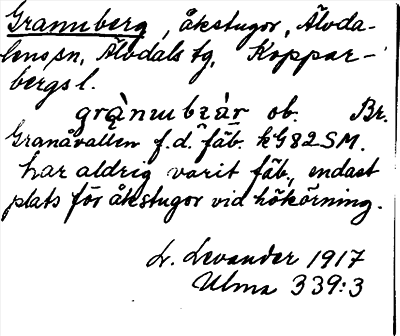 Granuberg, åkstugor, Älvda-
lens sn, Älvdals tg, Koppar-
bergs l.
grànubzàr ob. Br.
Granåvallen f.d. fäb. kG82SM.
har aldrig varit fäb., endast
plats för åkstugor vid hökörning.
L. Levander 1917
Ulma 339:3